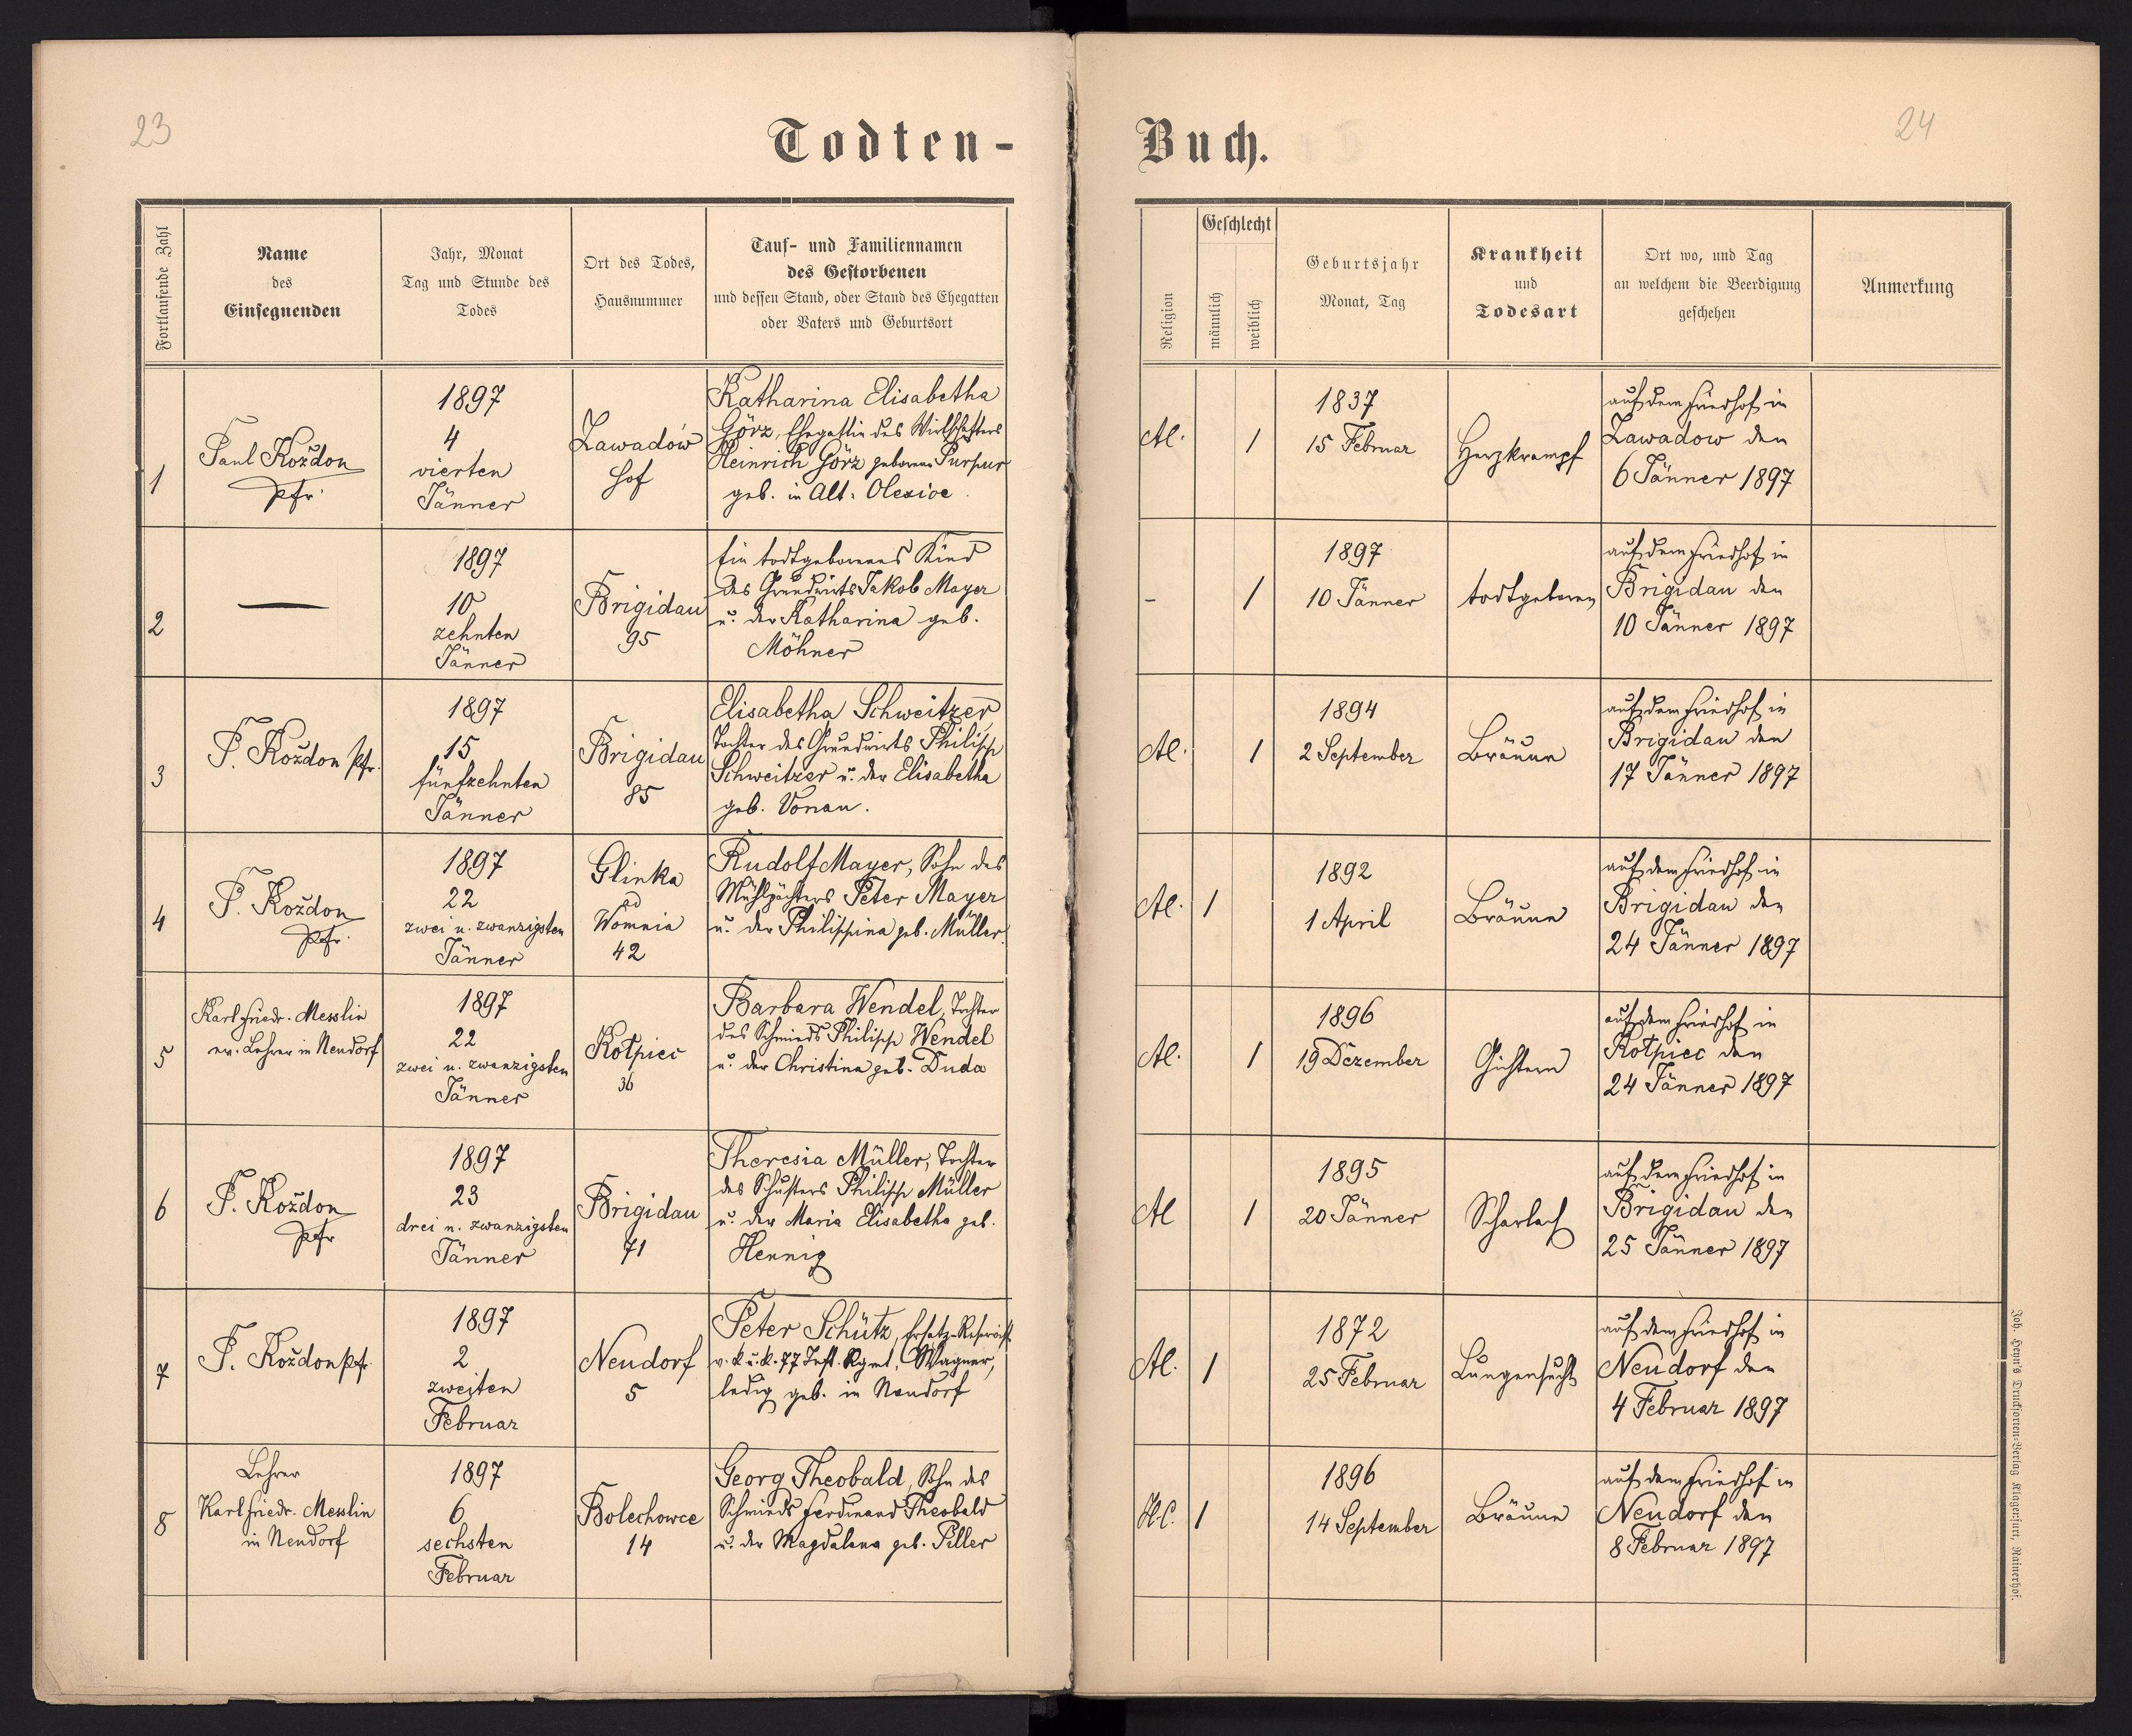 23
24
Todten-
Buch.
Fortlaufende Zahl
Name
des
Einsegnenden
Jahr, Monat
Tag und Stunde des
Todes
Ort des Todes,
Hausnummer
Tauf- und Familiennamen
des Gestorbenen
und dessen Stand, oder Stand des Ehegatten
oder Vaters und Geburtsort
Religion
Geschlecht
männlich
weiblich
Geburtsjahr
Monat, Tag
Krankheit
und
Todesart
Ort wo, und Tag
an welchem die Beerdigung
geschehen
Anmerkung
1
Paul Koždon
Pfr.
1897
4
vierten
Jänner
Zawadów
Hof
Katharina Elisabetha
Görz, Ehegattin des Wirthschafters
Heinrich Görz geborene Purpur
geb. in Alt-Olexice.
Al.
1
1837
15 Februar
Herzkrampf
auf dem Friedhof in
Zawadow den
6 Jänner 1897
2
—
1897
10
zehnten
Jänner
Brigidau
95
Ein todtgeborenes Kind
des Grundwirts Jakob Mayer
u. der Katharina geb.
Möhner
-
1
1897
10 Jänner
todtgeboren
auf dem Friedhof in
Brigidau den
10 Jänner 1897
3
P. Koždon Pfr.
1897
15
fünfzehnten
Jänner
Brigidau
85
Elisabetha Schweitzer
Tochter des Grundwirts Philipp
Schweitzer u. der Elisabetha
geb. Vonau.
Al.
1
1894
2 September
Bräune
auf dem Friedhof in
Brigidau den
17 Jänner 1897
4
P. Koždon
Pfr.
1897
22
zwei u. zwanzigsten
Jänner
Glinka
ad
Wownia
42
Rudolf Mayer, Sohn des
Mühlpächters Peter Mayer
u. der Philippina geb. Müller.
Al.
1
1892
1 April
Bräune
auf dem Friedhof in
Brigidau den
24 Jänner 1897
5
Karl Friedr. Messlin
ev. Lehrer in Neudorf
1897
22
zwei u. zwanzigsten
Jänner
Kołpiec
36
Barbara Wendel, Tochter
des Schmieds Philipp Wendel
u. der Christina geb. Duda
Al.
1
1896
19 Dezember
Gichtern
auf dem Friedhof in
Kołpiec den
24 Jänner 1897
6
P. Koždon
Pfr
1897
23
drei u. zwanzigsten
Jänner
Brigidau
71
Theresia Müller, Tochter
des Schusters Philipp Müller
u. der Maria Elisabetha geb.
Hennig
Al
1
1895
20 Jänner
Scharlach
auf dem Friedhof in
Brigidau den
25 Jänner 1897
7
P. Koždon Pfr.
1897
2
zweiten
Februar
Neudorf
5
Peter Schütz, Ersatz-Reservist
v. k. u. k. 77 Inft. Rgmt, Wagner,
ledig geb. in Neudorf
Al.
1
1872
25 Februar
Lungensucht
auf dem Friedhof in
Neudorf den
4 Februar 1897
8
Lehrer
Karl Friedr. Messlin
in Neudorf
1897
6
sechsten
Februar
Bolechowce
14
Georg Theobald, Sohn des
Schmieds Ferdinand Theobald
u. der Magdalena geb. Piller
H.C.
1
1896
14 September
Bräune
auf dem Friedhof in
Neudorf den
8 Februar 1897
Joh. Heyn's Drucksorten-Verlag Klagenfurt, Rainerhof.